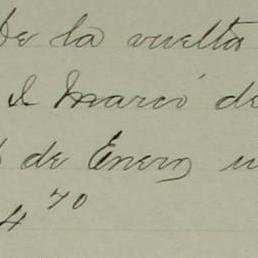 De la vuelta
I. Marcó de
de Enero
4 70